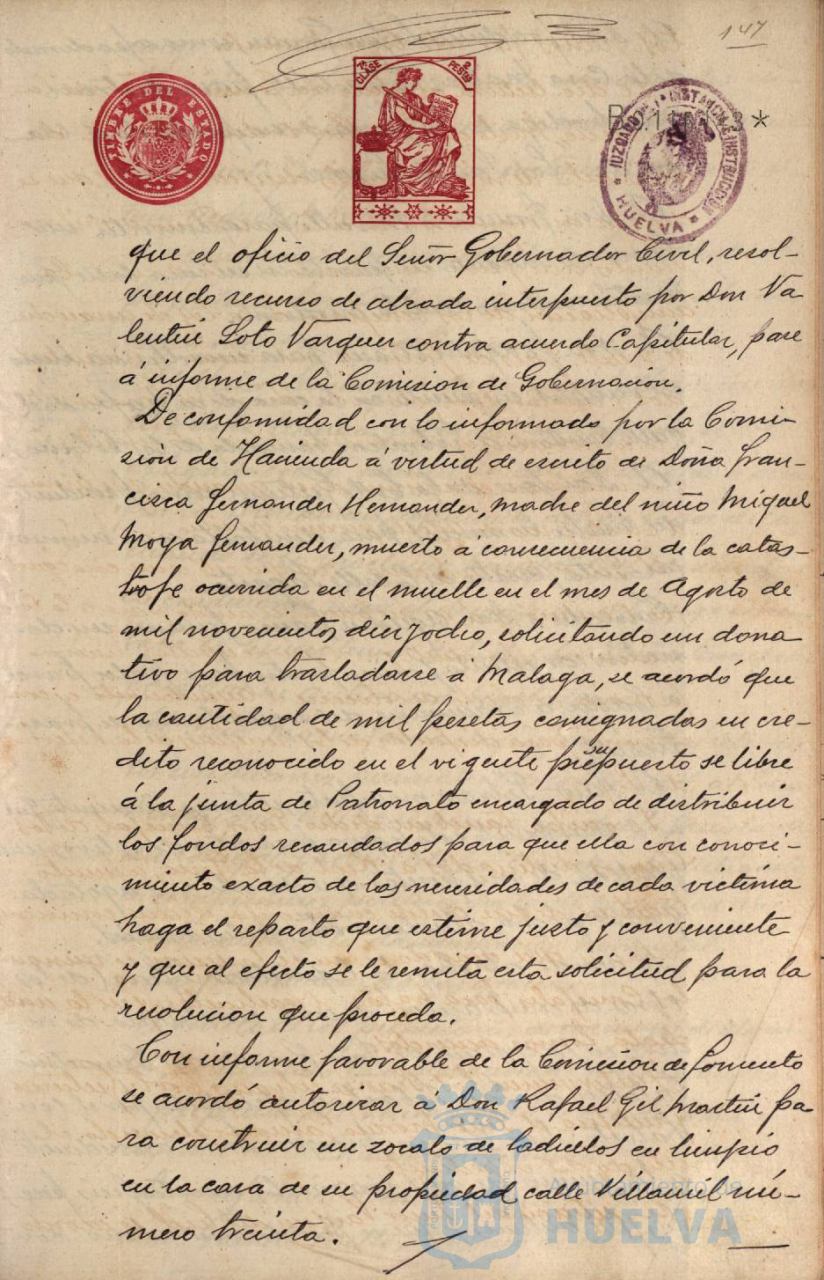 147
TIMBRE DEL ESTADO
7ª CLASE 2 PESTAS
JUZGADO DE 1ª INSTANCIA E INSTRUCCION
* HUELVA *
que el oficio del Señor Gobernador Civil, resol-
viendo recurso de alzada interpuesto por Don Va
lentin Soto Vazquez contra acuerdo Capitular, pase
á informe de la Comision de Gobernacion.
De conformidad con lo informado por la Comi-
sión de Hacienda á virtud de escrito de Doña Fran-
cisca Fernandez Hernandez, madre del niño Miguel
Moya Fernandez, muerto á consecuencia de la catás-
trofe ocurrida en el muelle en el mes de Agosto de
mil novecientos diez y ocho, solicitando un dona
tivo para trasladarse á Malaga, se acordó que
la cantidad de mil pesetas consignadas en cre-
dito reconocido en el vigente presupuesto se libre
á la junta de Patronato encargado de distribuir
los fondos recaudados para que ella con conoci-
miento exacto de las necesidades de cada victima
haga el reparto que estime justo y conveniente
y que al efecto se le remita esta solicitud para la
resolucion que proceda.
Con informe favorable de la Comision de Fomento
se acordó autorizar a Don Rafael Gil Martin pa
ra construir un zocalo de ladrillos en limpio
en la casa de su propiedad calle Villamil nú-
mero treinta.
Ayuntamiento de
HUELVA